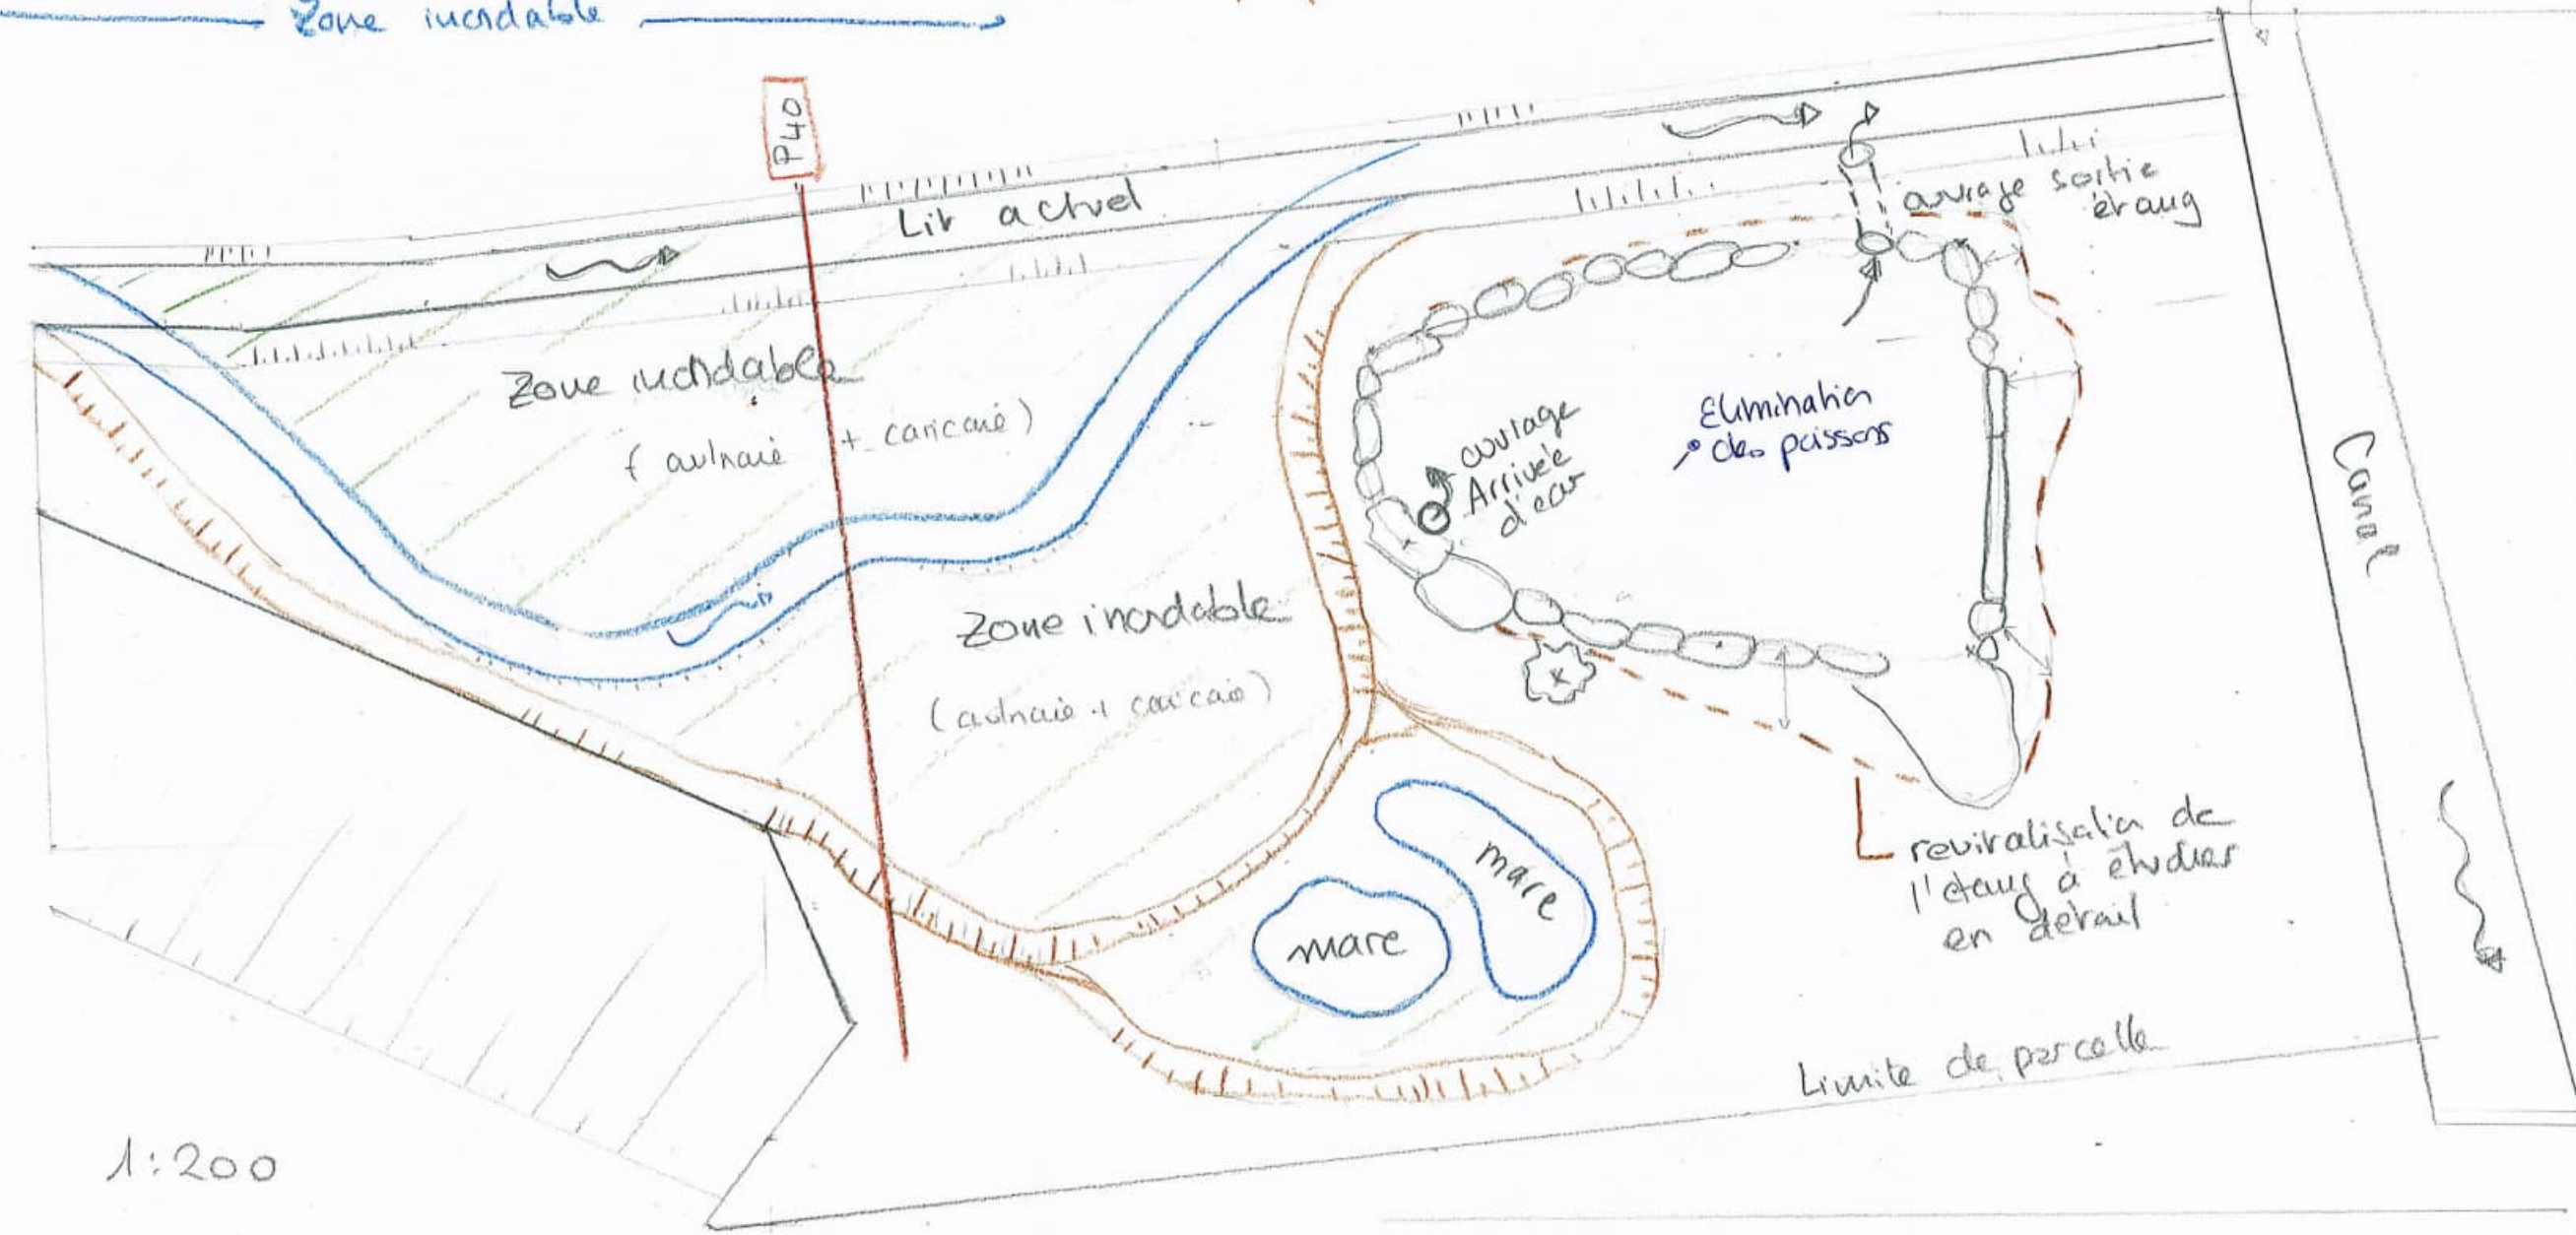 Zone inondable
P40
Lit actuel
ouvrage sortie
étang
Zone inondable
(aulnaie + caricaie)
Elimination
des poissons
ouvrage
Arrivée
d'eau
Canal
Zone inondable
(aulnaie + caricaie)
revitalisation de
l'étang à étudier
en détail
mare
mare
Limite de parcelle
1:200